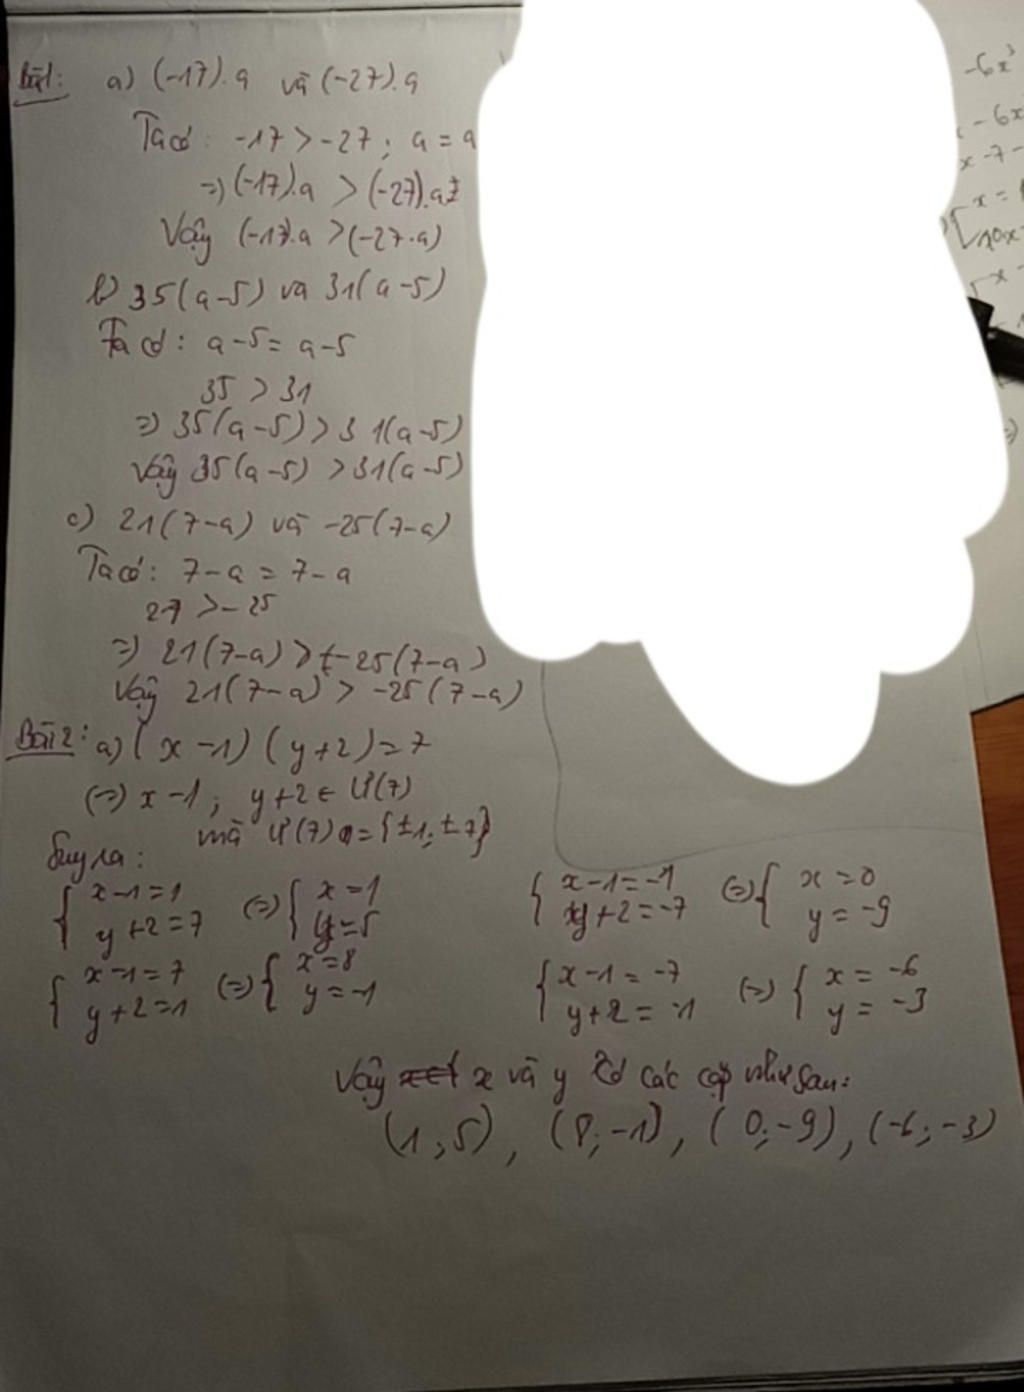 Bài 1: a) (-17).a và (-27).a
Ta có: -17 > -27; a = a
=> (-17).a > (-27).a
Vậy (-17).a > (-27.a)
b) 35(a-5) và 31(a-5)
Ta có: a-5 = a-5
35 > 31
=> 35(a-5) > 31(a-5)
Vậy 35(a-5) > 31(a-5)
c) 21(7-a) và -25(7-a)
Ta có: 7-a = 7-a
27 > -25
=> 21(7-a) > -25(7-a)
Vậy 21(7-a) > -25(7-a)
Bài 2: a) (x-1)(y+2)=7
(=>) x-1; y+2 ∈ Ư(7)
mà Ư(7) = {±1; ±7}
Suy ra:
{ x-1=1 (=>) { x=1
y+2=7 y=5
{ x-1=7 (=>) { x=8
y+2=1 y=-1
{ x-1=-1 (=>) { x=0
y+2=-7 y=-9
{ x-1=-7 (=>) { x=-6
y+2=-1 y=-3
Vậy x và y có các cặp như sau:
(1;5), (8;-1), (0;-9), (-6;-3)
-6x³
- 6x
x-7-
x =
10x-
x -